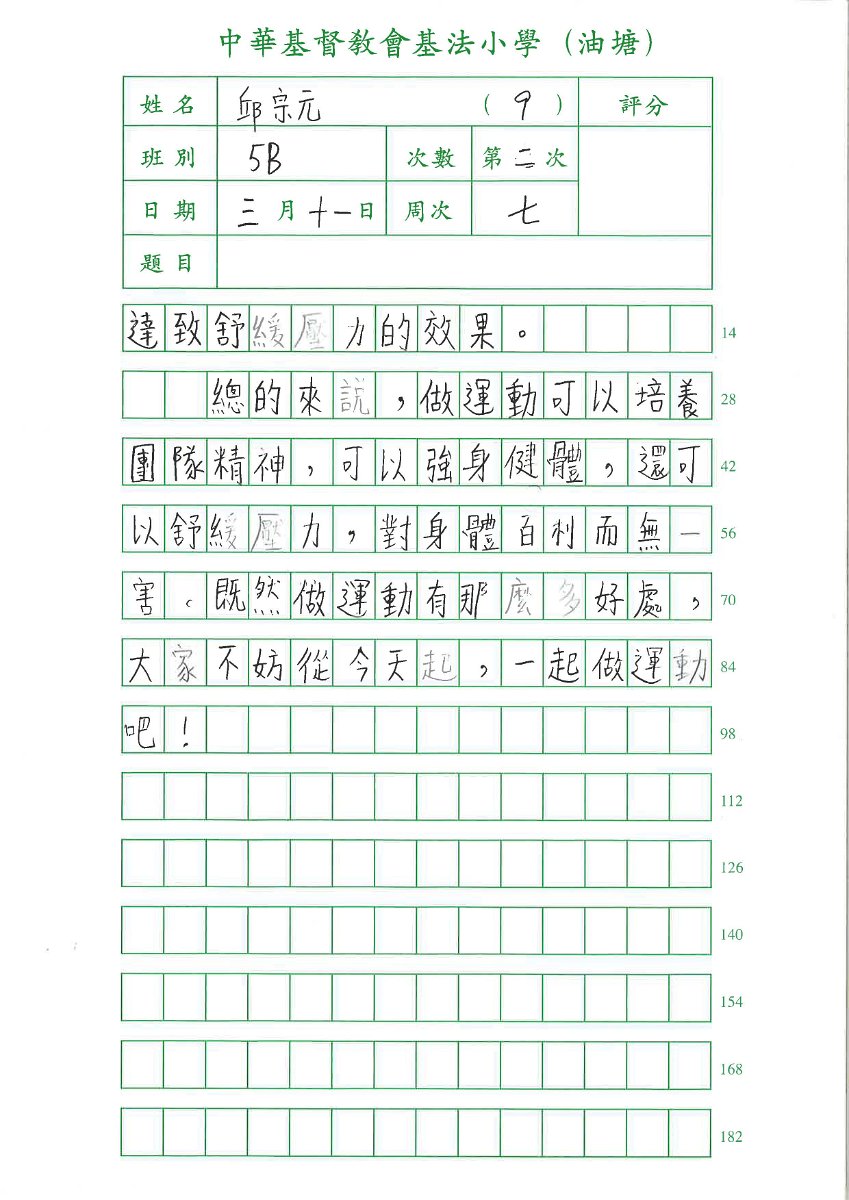 中華基督教會基法小學（油塘）
姓名 邱宗元 （9） 評分
班別 5B 次數 第二次
日期 三月十一日 周次 七
題目
達致舒緩壓力的效果。 14
總的來説，做運動可以培養 28
團隊精神，可以強身健體，還可 42
以舒緩壓力，對身體百利而無一 56
害。既然做運動有那麼多好處， 70
大家不妨從今天起，一起做運動 84
吧！ 98
112
126
140
154
168
182